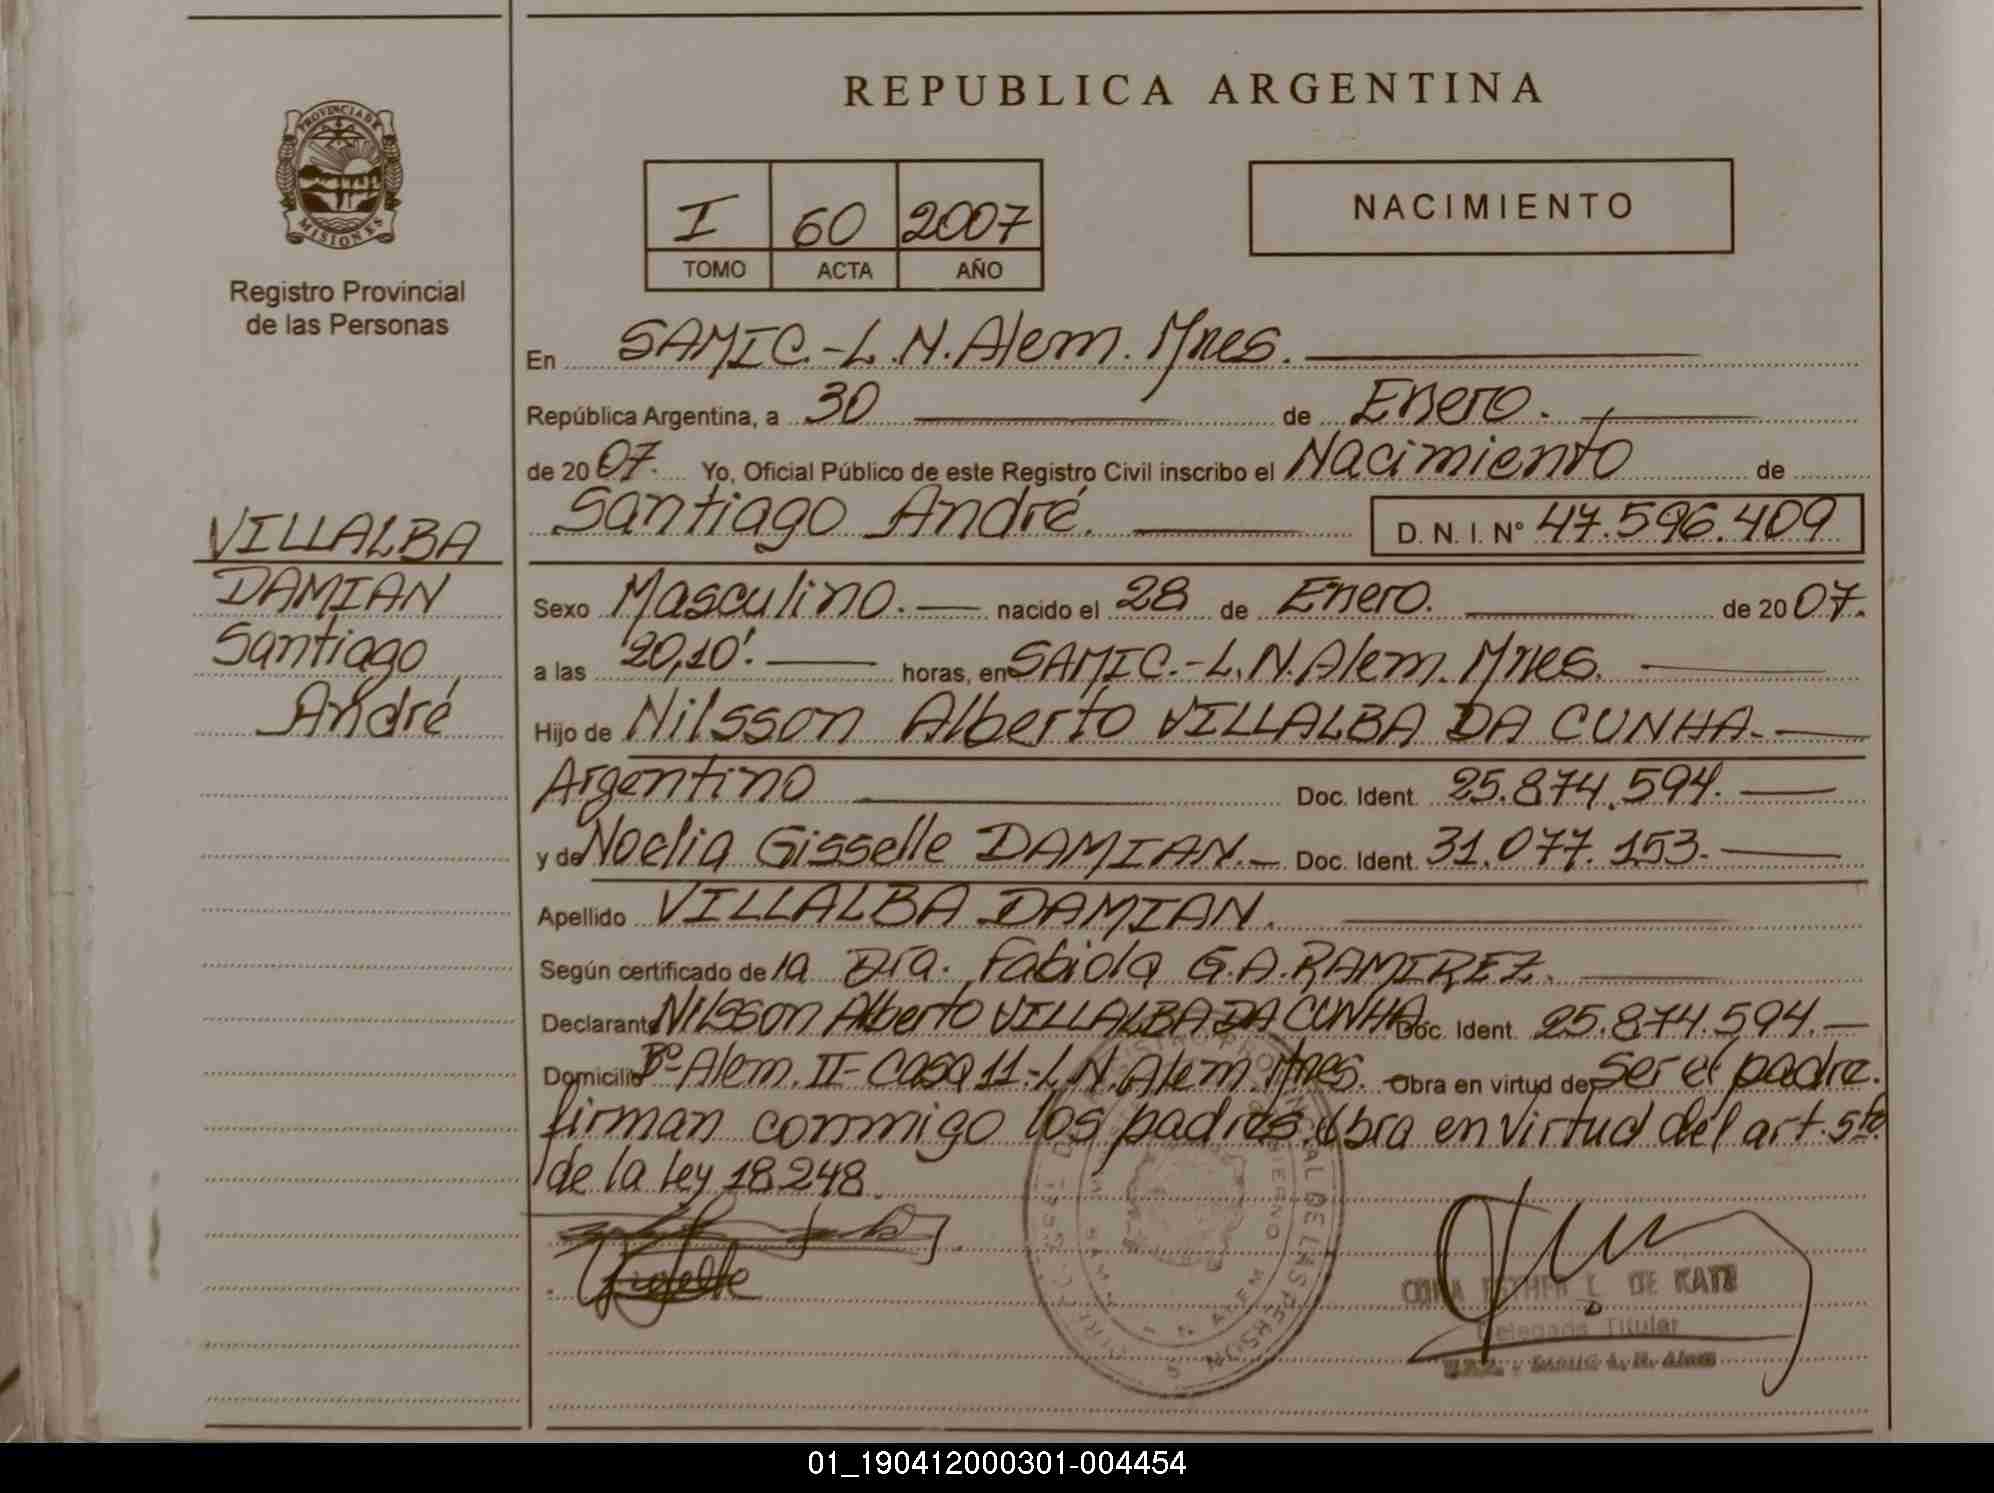 REPUBLICA ARGENTINA
PROVINCIA DE
MISIONES
Registro Provincial
de las Personas
I 60 2007
TOMO ACTA AÑO
NACIMIENTO
En SAMIC.-L.N.Alem. Mnes.
República Argentina, a 30 de Enero.
de 2007. Yo, Oficial Público de este Registro Civil inscribo el Nacimiento de
Santiago André. D. N. I. N° 47.596.409
VILLALBA
DAMIAN
Santiago
André
Sexo Masculino. nacido el 28 de Enero. de 2007.
a las 20,10'. horas, en SAMIC.-L.N.Alem. Mnes.
Hijo de Nilsson Alberto VILLALBA DA CUNHA.
Argentino Doc. Ident. 25.874.594.
y de Noelia Gisselle DAMIAN. Doc. Ident. 31.077.153.
Apellido VILLALBA DAMIAN.
Según certificado de la Dra. Fabiola G.A.RAMIREZ.
Declarante Nilsson Alberto VILLALBA DA CUNHA. Doc. Ident. 25.874.594.
Domicilio Bº Alem. II- Casa 11.-L.N.Alem. Mnes. Obra en virtud de ser el padre.
firman conmigo los padres. Obra en virtud del art. 5to.
de la ley 18248.
ESTHER L. DE
Delegada Titular
L. N. Alem
01_190412000301-004454